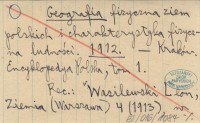 Geografia fizyczna ziem
polskich i charakterystyka fizycz-
na ludności. 1912. Kraków.
Encyklopedya Polska, tom 1.
Rec.: Wasilewski Leon,
Ziemia (Warszawa) 4 (1913),